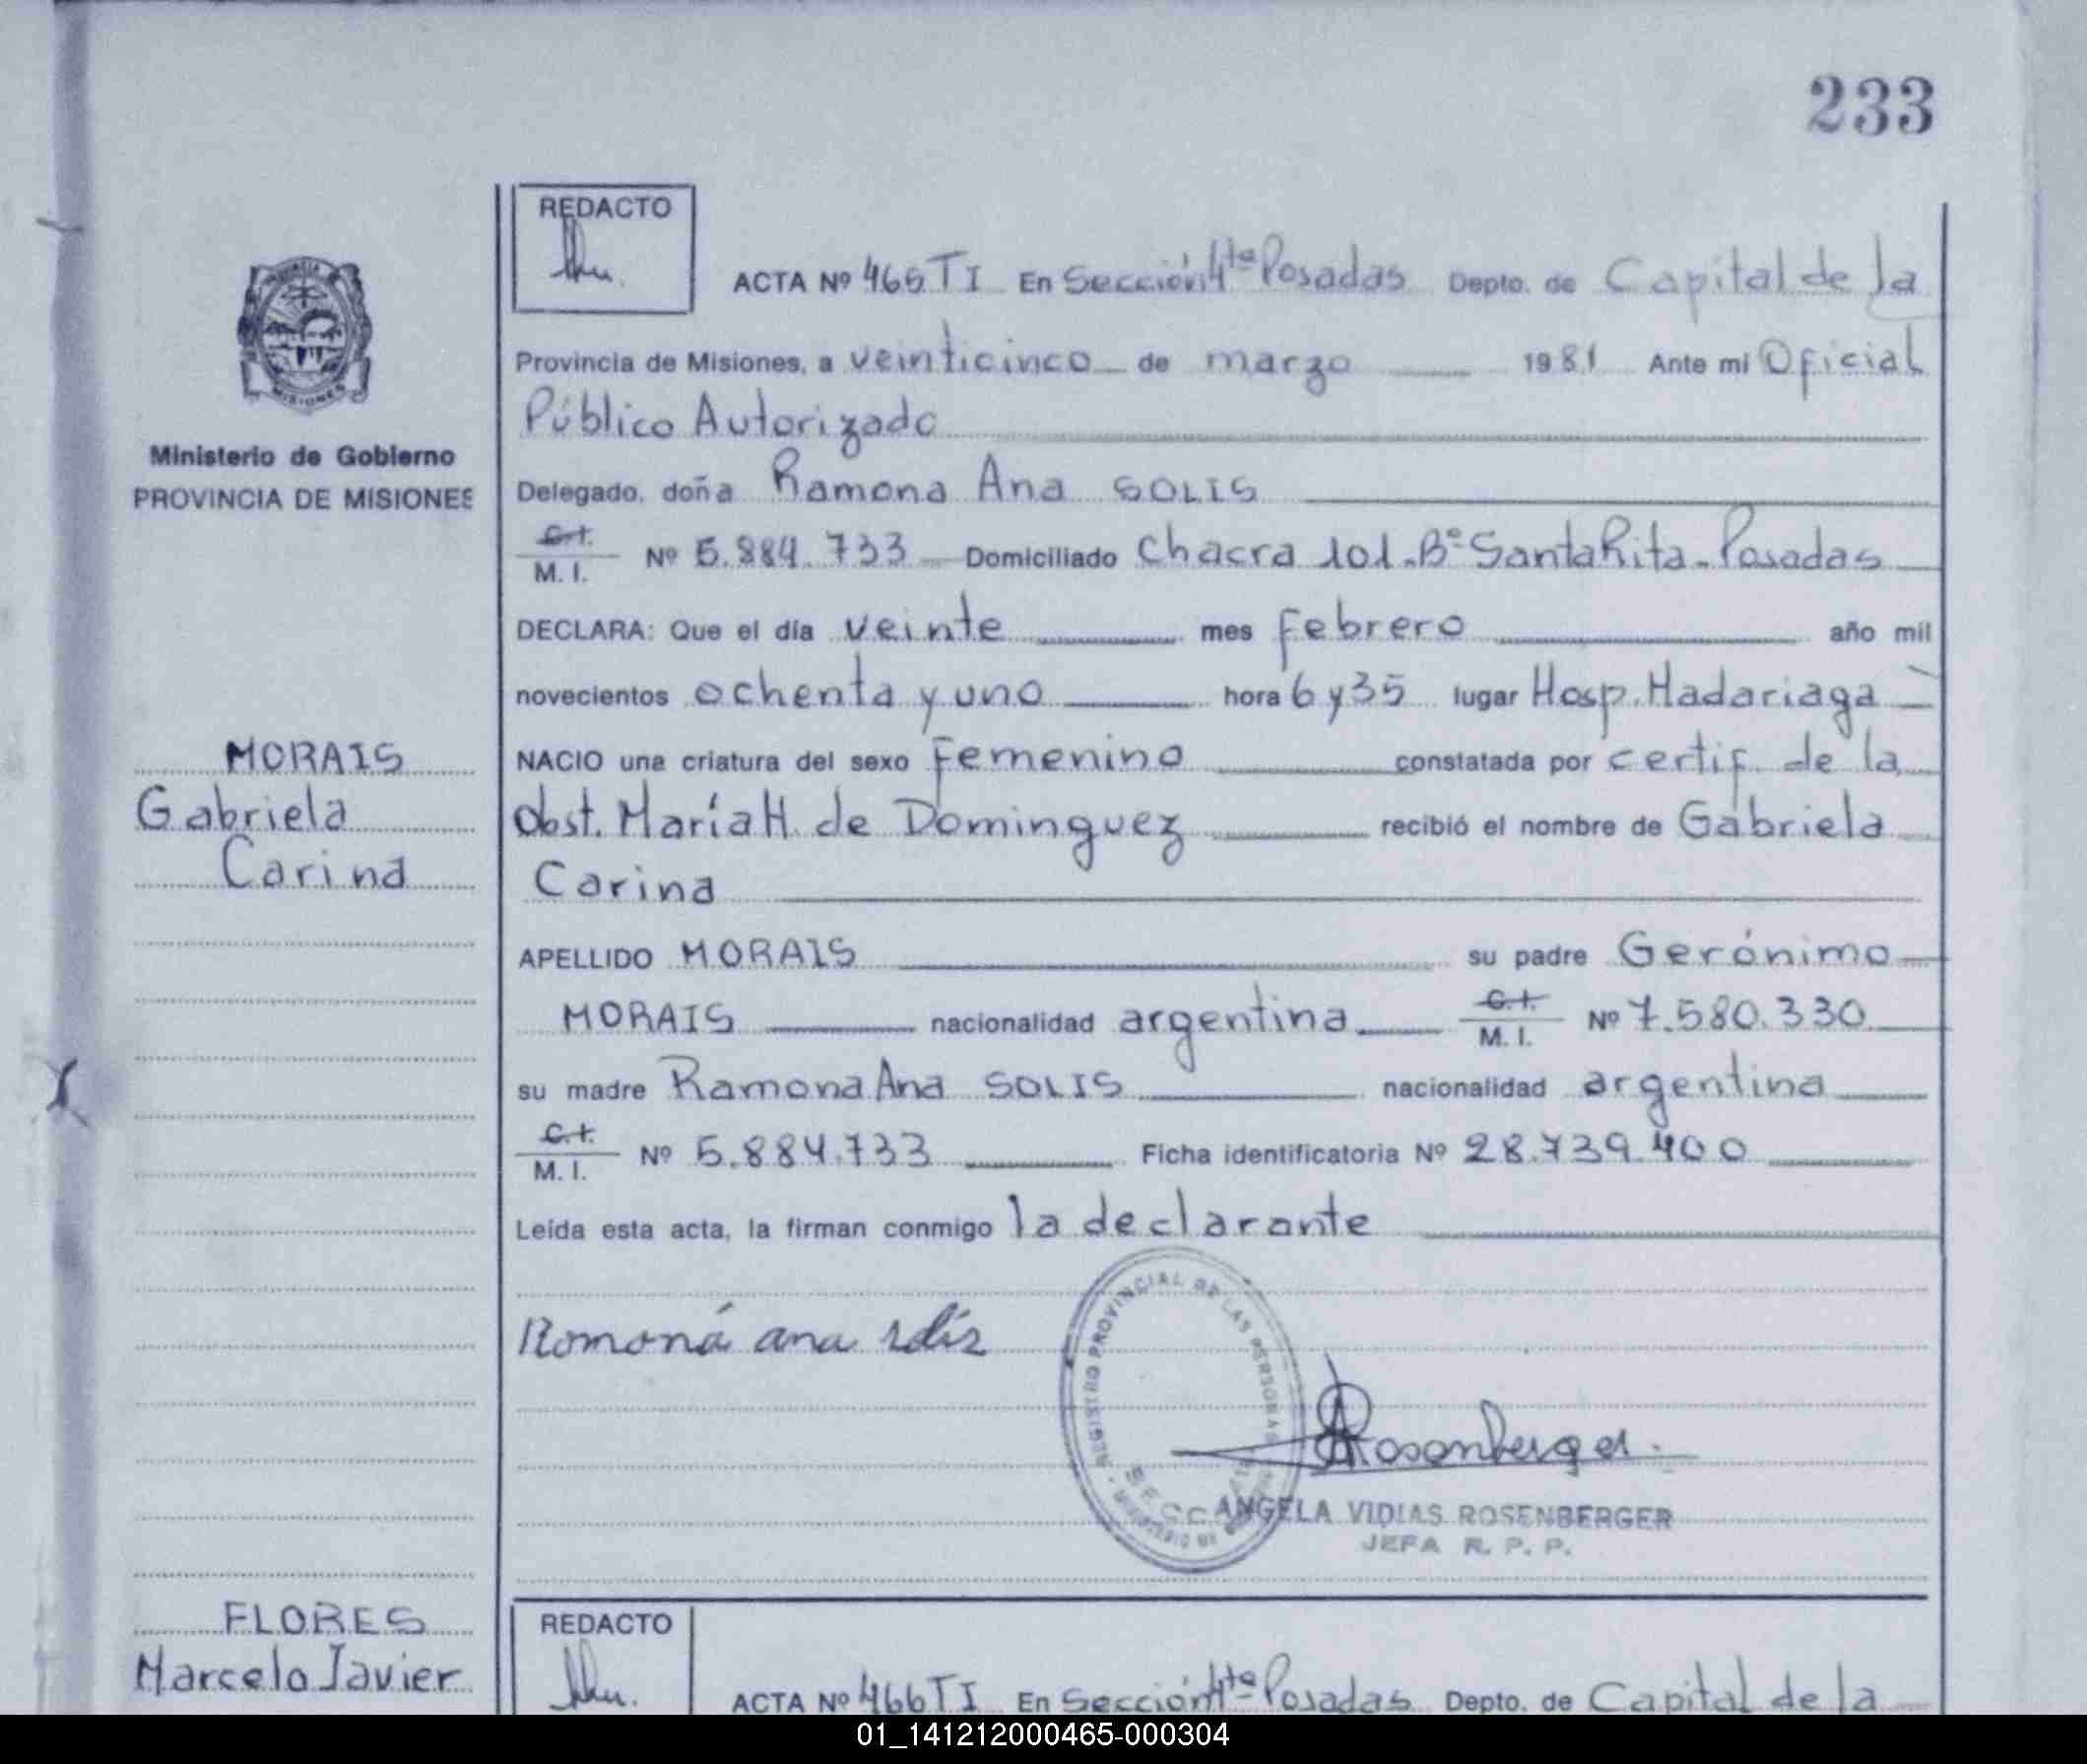 233
REDACTO
ACTA Nº 465 TI En Sección 4ta Posadas Depto. de Capital de la
Provincia de Misiones, a veinticinco de marzo 1981 Ante mi Oficial
Público Autorizado
Delegado, doña Ramona Ana SOLIS
C.I.
M. I. Nº 5.884.733 Domiciliado Chacra 101-Bº Santa Rita-Posadas
DECLARA: Que el día veinte mes febrero año mil
novecientos ochenta y uno hora 6 y 35 lugar Hosp. Madariaga
NACIO una criatura del sexo femenino constatada por certif. de la
Obst. María H. de Dominguez recibió el nombre de Gabriela
Carina
APELLIDO MORAIS su padre Gerónimo
MORAIS nacionalidad argentina C.I. M. I. Nº 7.580.330
su madre Ramona Ana SOLIS nacionalidad argentina
C.I.
M. I. Nº 5.884.733 Ficha identificatoria Nº 28.739.400
Leída esta acta, la firman conmigo la declarante
Romoná ana solis
REGISTRO PROVINCIAL DE LAS PERSONAS
Rosenberger
ANGELA VIDIAS ROSENBERGER
JEFA R. P. P.
PROVINCIA
MISIONES
Ministerio de Gobierno
PROVINCIA DE MISIONES
MORAIS
Gabriela
Carina
FLORES
Marcelo Javier
REDACTO
ACTA Nº 466 TI En Sección 4ta Posadas Depto. de Capital de la
01_141212000465-000304